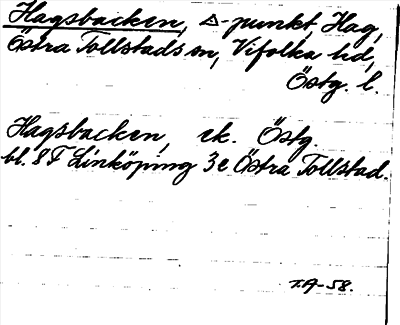 Hagsbacken, △-punkt, Hag,
Östra Tollstads sn, Vifolka hd,
Östg. l.
Hagsbacken, ek. Östg.
bl. 8 F Linköping 3e Östra Tollstad.
T.A-58.